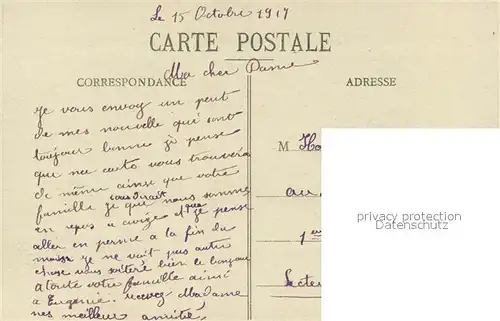 Le 15 Octobre 1917
CARTE POSTALE
Ma cher Dame
CORRESPONDANCE
ADRESSE
Je vous envoy un peut
de mes nouvelle qui sont
toujour bonne je pense
que ma carte vous trouvera
de même ainsi que votre
famille je que nous somme
en repos a et je pense
aller en perme a la fin du
mois je ne vait pas autre
chose vous bien le bonjour
a toute votre famille ainsi
a Eugenie. recevez Madame
mes meilleur amitié
M
au
1er
Secte
privacy protection
www.delcampe.net